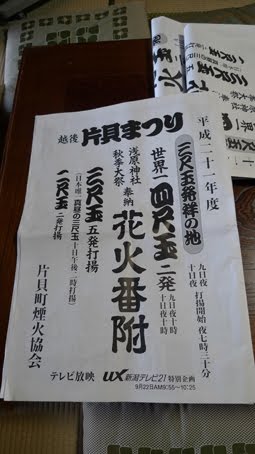 平成二十一年度
三尺玉発祥の地
九日夜 打揚開始 夜七時三十分
十日夜
世界一 四尺玉 二発
九日夜十時
十日夜十時
浅原神社
秋季大祭
奉納
花火番附
越後 片貝まつり
三尺玉 五発打揚
（日本唯一 真昼の三尺玉 十日午後二時打揚）
二尺玉 二発打揚
片貝町煙火協会
テレビ放映 UX新潟テレビ21 特別企画
9月22日AM9:55〜10:25